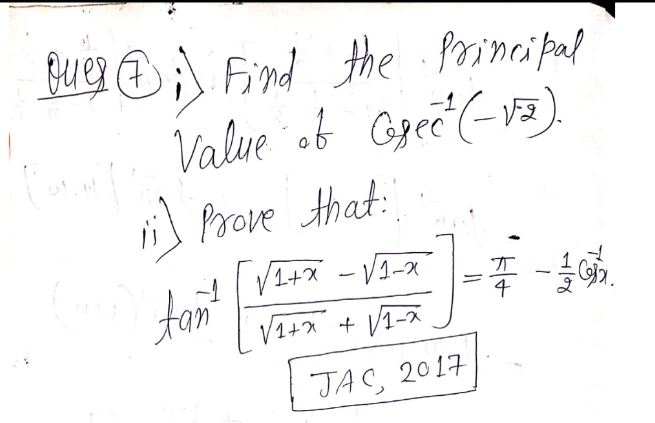 Ques 7 i) Find the Principal
Value of Cosec⁻¹(-√2).
ii) Prove that:
tan⁻¹ [ (√1+x - √1-x) / (√1+x + √1-x) ] = π/4 - 1/2 Cos⁻¹x.
JAC, 2017